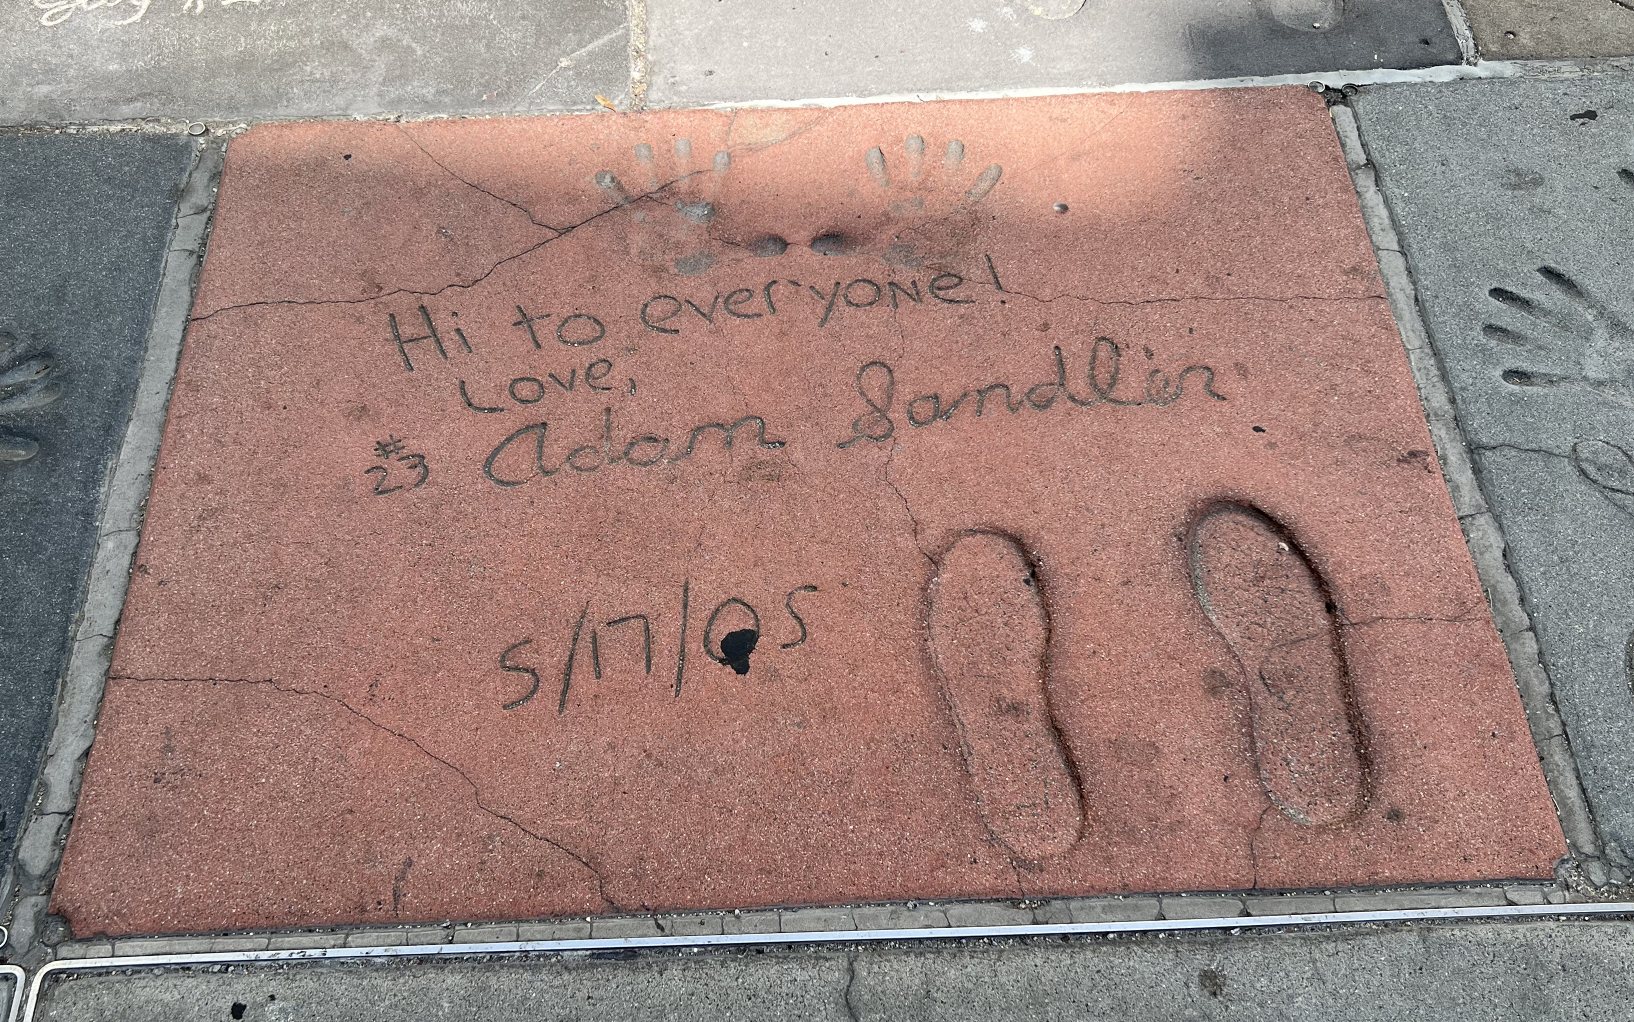 Hi to everyone!
Love,
#23 Adam Sandler
5/17/05